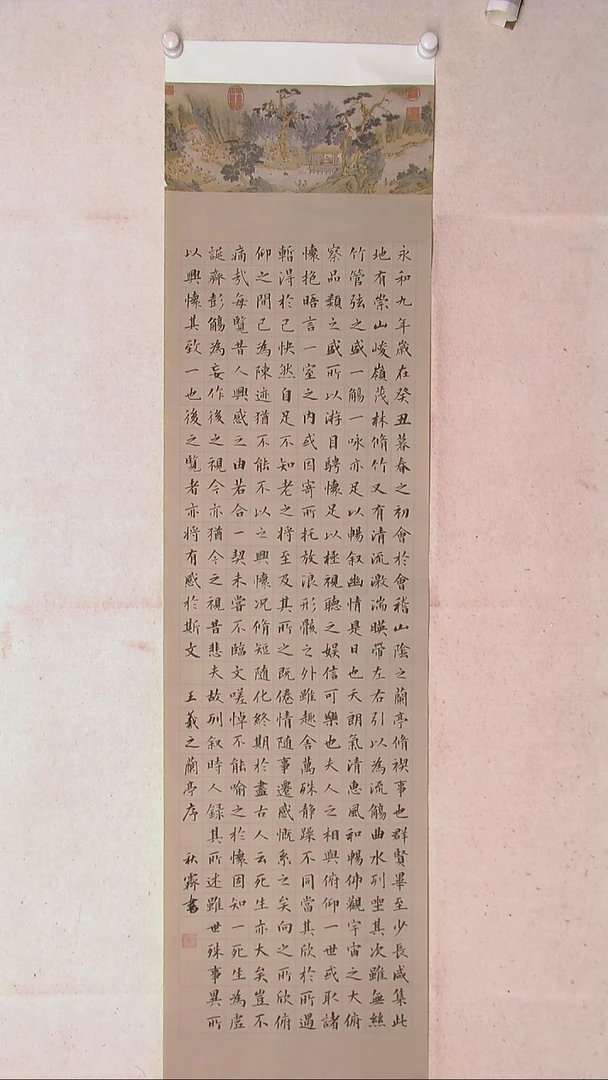 永和九年歲在癸丑暮春之初會於會稽山陰之蘭亭脩禊事也群賢畢至少長咸集此
地有崇山峻嶺茂林脩竹又有清流激湍暎帶左右引以為流觴曲水列坐其次雖無絲
竹管弦之盛一觴一咏亦足以暢叙幽情是日也天朗氣清惠風和暢仰觀宇宙之大俯
察品類之盛所以游目騁懷足以極視聽之娛信可樂也夫人之相與俯仰一世或取諸
懷抱晤言一室之内或因寄所托放浪形骸之外雖趣舍萬殊静躁不同當其欣於所遇
暫得於己快然自足不知老之將至及其所之既倦情隨事遷感慨系之矣向之所欣俯
仰之間已為陳迹猶不能不以之興懷况脩短隨化終期於盡古人云死生亦大矣豈不
痛哉每覽昔人興感之由若合一契未嘗不臨文嗟悼不能喻之於懷固知一死生為虛
誕齊彭觴為妄作後之視今亦猶今之視昔悲夫故列叙時人録其所述雖世殊事異所
以興懷其致一也後之覽者亦將有感於斯文 王羲之蘭亭序 秋霽書